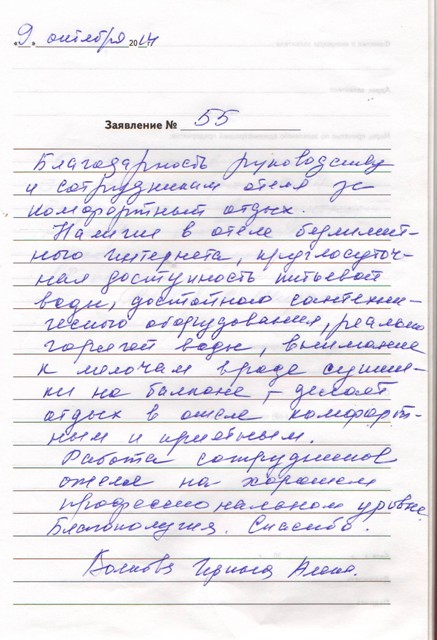 «9» октября 2014
Заявление № 55
Благодарность руководству
и сотрудникам отеля за
комфортный отдых.
Наличие в отеле безлимит-
ного интернета, круглосуточ-
ная доступность питьевой
воды, достойного сантехни-
ческого оборудования, реально
горячей воды, внимание
к мелочам вроде сушил-
ки на балконе, – делает
отдых в отеле комфорт-
ным и приятным.
Работа сотрудников
отеля на хорошем
профессиональном уровне.
Благополучия. Спасибо.
Волкова Ирина